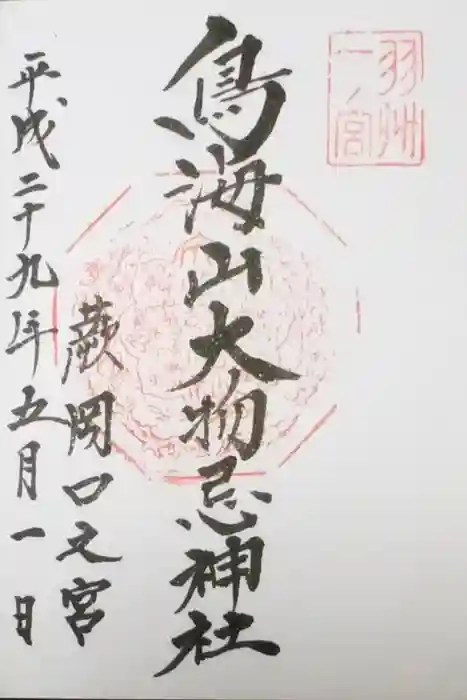 羽州
一ノ宮
鳥海山大物忌神社
蕨岡口之宮
平成二十九年五月一日